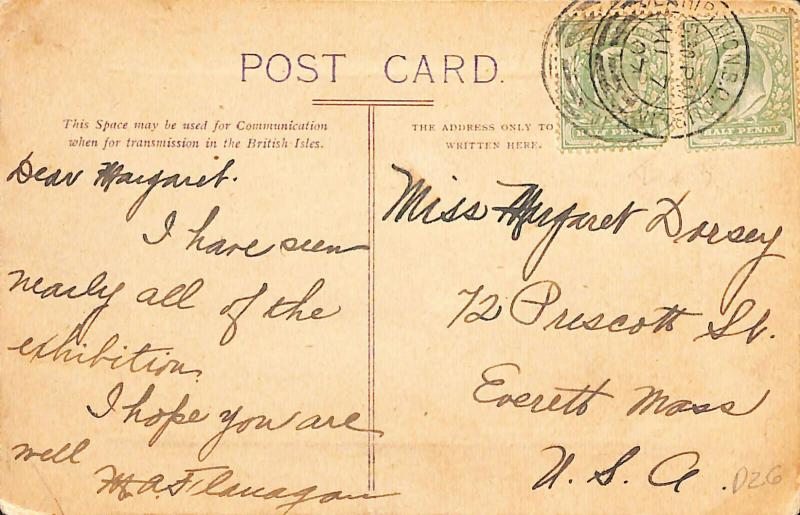 POST CARD.
This Space may be used for Communication
when for transmission in the British Isles.
THE ADDRESS ONLY TO
WRITTEN HERE.
HALF PENNY
HALF PENNY
Dear Margaret.
I have seen
nearly all of the
exhibition.
I hope you are
well
M. A. Flanagan
Miss Margaret Dorsey
72 Prescott St.
Everett Mass
U. S. A.
D26